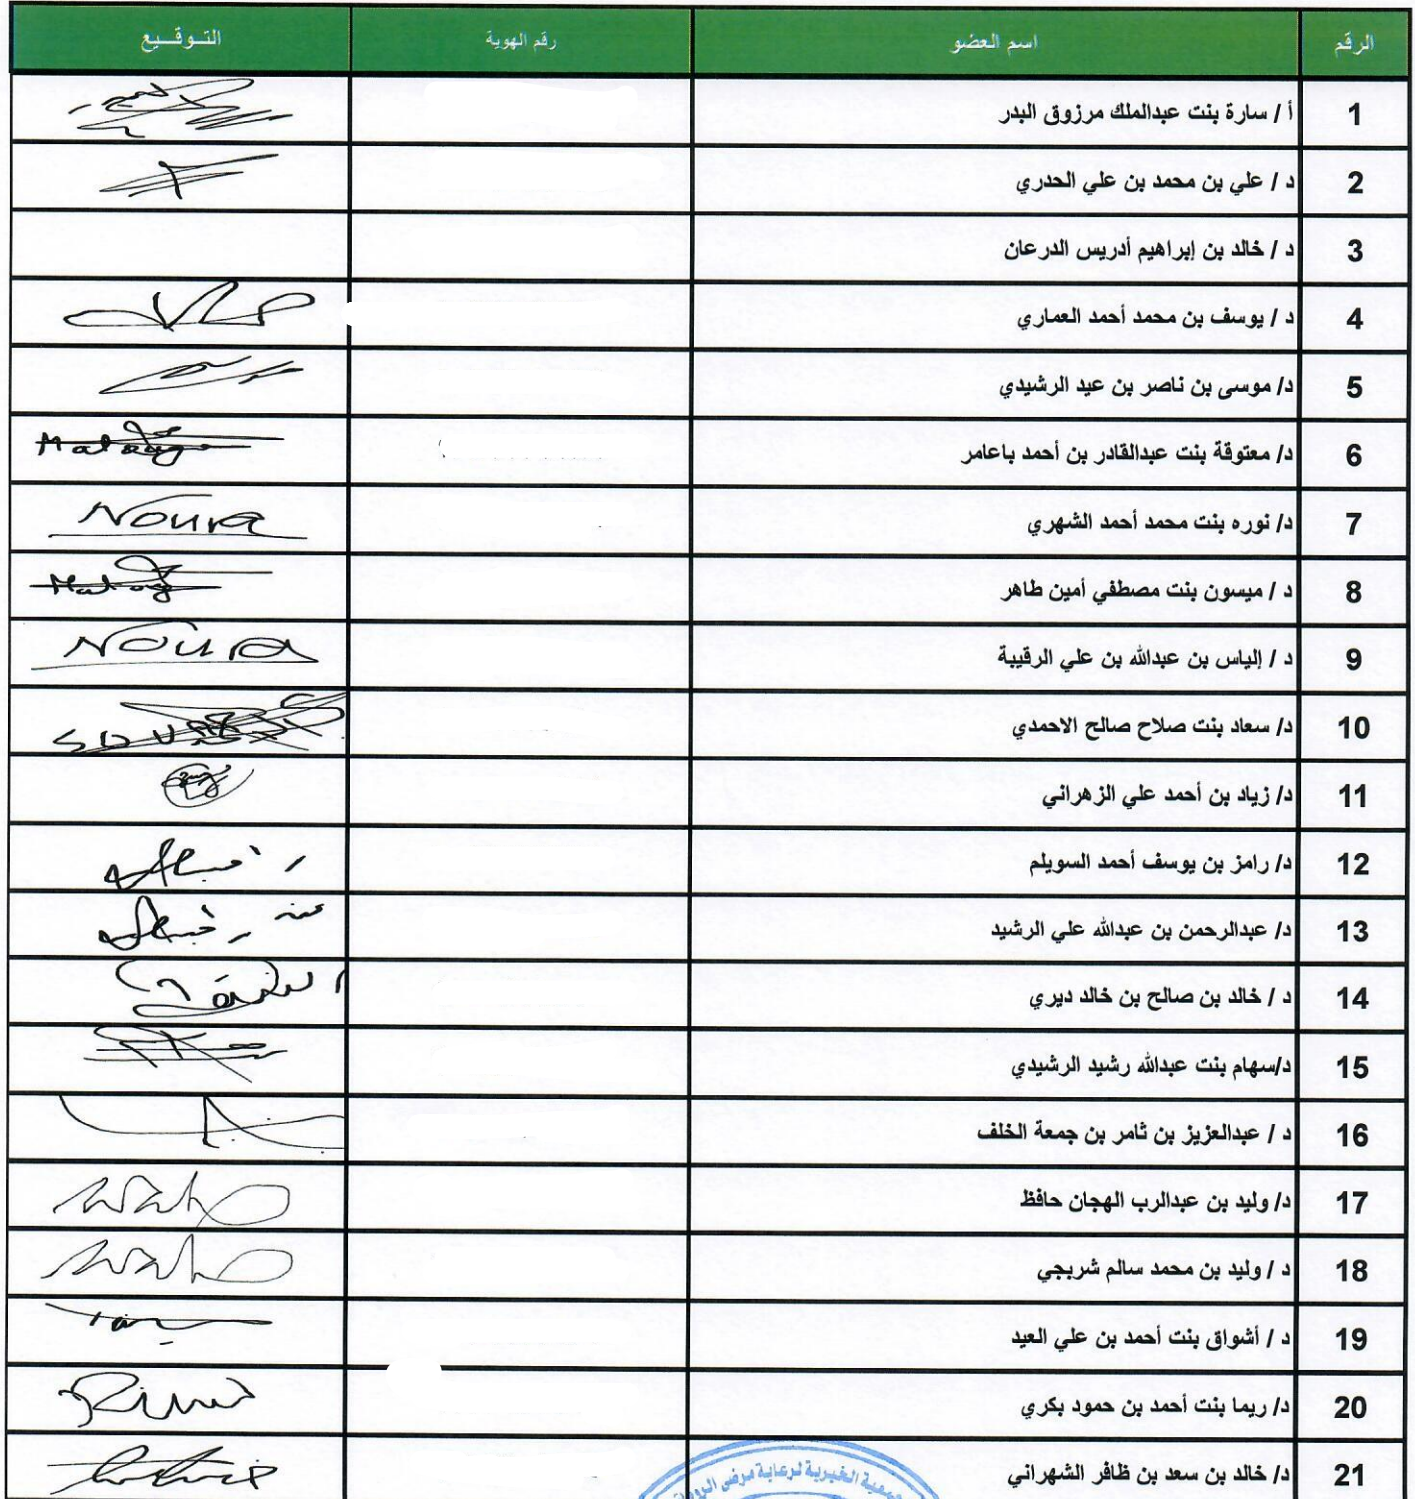 الرقم اسم العضو رقم الهوية التــوقــيع
1 أ / سارة بنت عبدالملك مرزوق البدر
2 د / علي بن محمد بن علي الحدري
3 د / خالد بن إبراهيم أدريس الدرعان
4 د / يوسف بن محمد أحمد العماري
5 د/ موسى بن ناصر بن عيد الرشيدي
6 د/ معتوقة بنت عبدالقادر بن أحمد باعامر
7 د/ نوره بنت محمد أحمد الشهري Noura
8 د / ميسون بنت مصطفي أمين طاهر
9 د / إلياس بن عبدالله بن علي الرقيبة Noura
10 د/ سعاد بنت صلاح صالح الاحمدي
11 د/ زياد بن أحمد علي الزهراني
12 د/ رامز بن يوسف أحمد السويلم
13 د/ عبدالرحمن بن عبدالله علي الرشيد
14 د / خالد بن صالح بن خالد ديري
15 د/سهام بنت عبدالله رشيد الرشيدي
16 د / عبدالعزيز بن ثامر بن جمعة الخلف
17 د/ وليد بن عبدالرب الهجان حافظ
18 د / وليد بن محمد سالم شربجي
19 د / أشواق بنت أحمد بن علي العيد
20 د/ ريما بنت أحمد بن حمود بكري
21 د/ خالد بن سعد بن ظافر الشهراني
الخيرية لرعاية مرضى